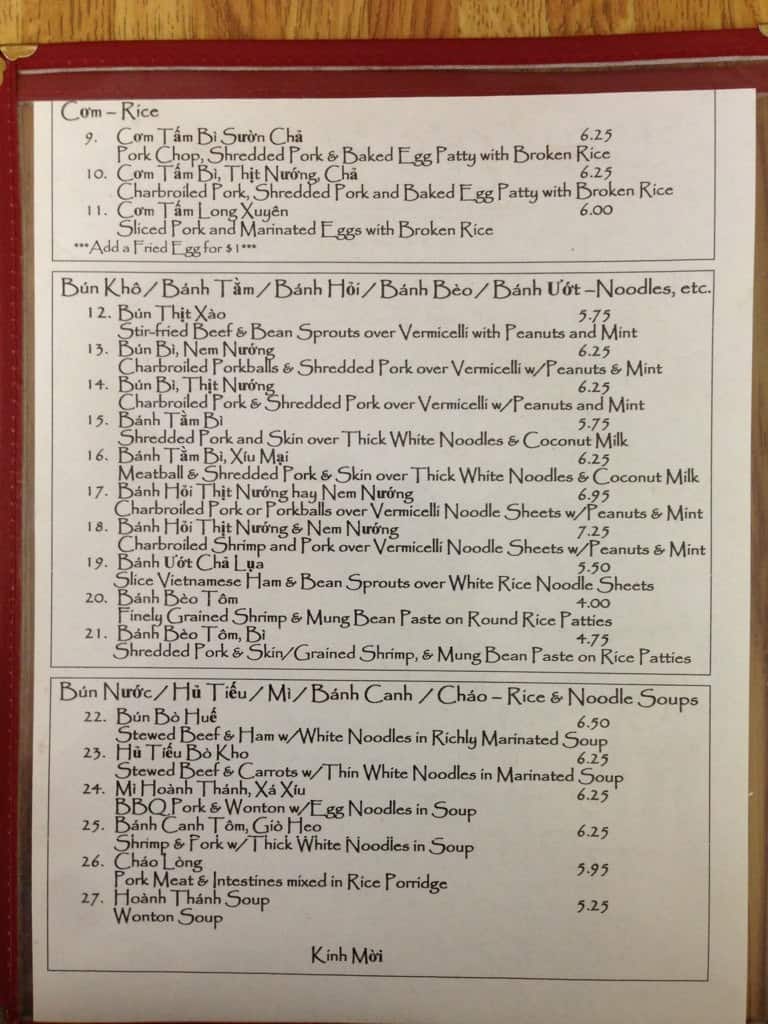 Cơm – Rice
9. Cơm Tấm Bì Sườn Chả 6.25
Pork Chop, Shredded Pork & Baked Egg Patty with Broken Rice
10. Cơm Tấm Bì, Thịt Nướng, Chả 6.25
Charbroiled Pork, Shredded Pork and Baked Egg Patty with Broken Rice
11. Cơm Tấm Long Xuyên 6.00
Sliced Pork and Marinated Eggs with Broken Rice
***Add a Fried Egg for $1***
Bún Khô / Bánh Tằm / Bánh Hỏi / Bánh Bèo / Bánh Ướt –Noodles, etc.
12. Bún Thịt Xào 5.75
Stir-fried Beef & Bean Sprouts over Vermicelli with Peanuts and Mint
13. Bún Bì, Nem Nướng 6.25
Charbroiled Porkballs & Shredded Pork over Vermicelli w/Peanuts & Mint
14. Bún Bì, Thịt Nướng 6.25
Charbroiled Pork & Shredded Pork over Vermicelli w/Peanuts and Mint
15. Bánh Tằm Bì 5.75
Shredded Pork and Skin over Thick White Noodles & Coconut Milk
16. Bánh Tằm Bì, Xíu Mại 6.25
Meatball & Shredded Pork & Skin over Thick White Noodles & Coconut Milk
17. Bánh Hỏi Thịt Nướng hay Nem Nướng 6.95
Charbroiled Pork or Porkballs over Vermicelli Noodle Sheets w/Peanuts & Mint
18. Bánh Hỏi Thịt Nướng & Nem Nướng 7.25
Charbroiled Shrimp and Pork over Vermicelli Noodle Sheets w/Peanuts & Mint
19. Bánh Ướt Chả Lụa 5.50
Slice Vietnamese Ham & Bean Sprouts over White Rice Noodle Sheets
20. Bánh Bèo Tôm 4.00
Finely Grained Shrimp & Mung Bean Paste on Round Rice Patties
21. Bánh Bèo Tôm, Bì 4.75
Shredded Pork & Skin/Grained Shrimp, & Mung Bean Paste on Rice Patties
Bún Nước / Hủ Tiếu / Mì / Bánh Canh / Cháo – Rice & Noodle Soups
22. Bún Bò Huế 6.50
Stewed Beef & Ham w/White Noodles in Richly Marinated Soup
23. Hủ Tiếu Bò Kho 6.25
Stewed Beef & Carrots w/Thin White Noodles in Marinated Soup
24. Mì Hoành Thánh, Xá Xíu 6.25
BBQ Pork & Wonton w/Egg Noodles in Soup
25. Bánh Canh Tôm, Giò Heo 6.25
Shrimp & Pork w/Thick White Noodles in Soup
26. Cháo Lòng 5.95
Pork Meat & Intestines mixed in Rice Porridge
27. Hoành Thánh Soup 5.25
Wonton Soup
Kính Mời